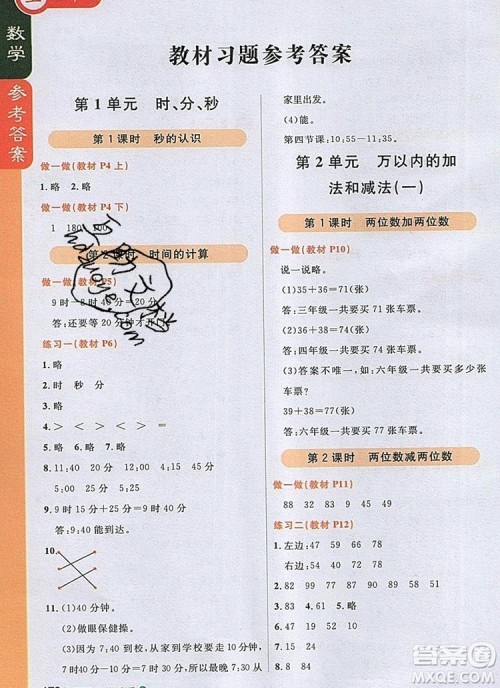 数学
参考答案
教材习题参考答案
第1单元 时、分、秒
第1课时 秒的认识
做一做(教材 P4 上)
1.略 2.略
做一做(教材 P4 下)
1 180
第2课时 时间的计算
做一做(教材 P5)
9时-8时40分=20分
答:还要等20分才开门。
练习一(教材 P6)
1.略
2.时 秒 分
3.略
4.< > < > = >
5.略 6.略 7.略
8.11:40 2:15 4:15 6:45
9.7:10+30分=7:40
答:7时40分能到达。
10.
11.(1)40分钟。
(2)做眼保健操。
(3)7:20 从家到学校要走10分钟,
7时30分到校,所以最晚7时20分从
家里出发。
(4)能。
第四节课:10:55—11:35。
第2单元 万以内的加
法和减法(一)
第1课时 两位数加两位数
做一做(教材 P10)
说一说略。
(1)35+36=71(张)
答:三年级一共要买71张车票。
(2)34+38=72(张)
答:四年级一共要买72张车票。
(3)答案不唯一,如:六年级一共要买多少张
车票?
39+38=77(张)
答:六年级一共要买77张车票。
第2课时 两位数减两位数
做一做(教材 P11)
88 32 83 9 45 49
练习二(教材 P12)
1.左边:47 59 66 78
右边:54 52 71 76
2.82 99 57 91 83 94
3.略
4.29 38 16 48 66 27
5.8 54 34 19 39 28
答案圈
MXQE.COM